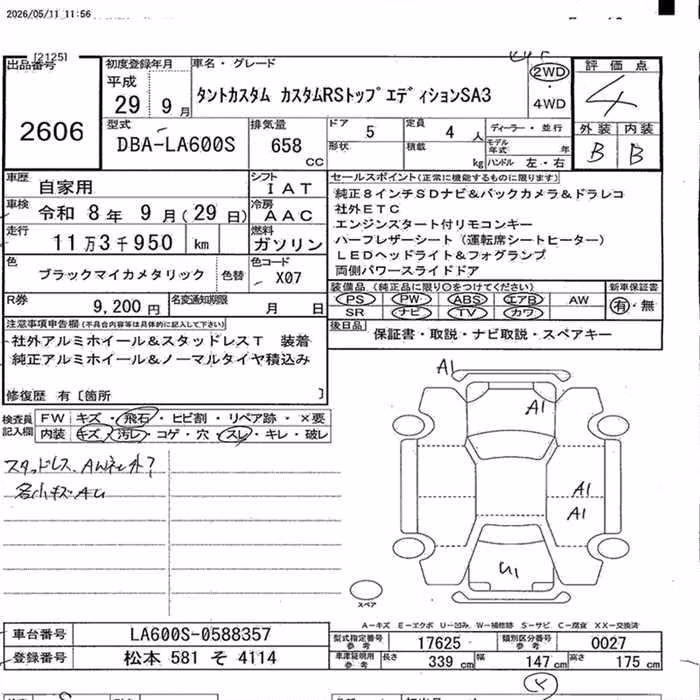 2026/05/11 11:56
[2125]
出品番号
2606
初度登録年月
平成
29年 9月
車名・グレード
タントカスタム カスタムRSトップエディションSA3
2WD
・
4WD
評価点
4
外装 内装
B B
型式
DBA-LA600S
排気量
658
CC
ドア 5
形状
定員 4 人
積載 kg
ディーラー・並行
モデル年式 年
ハンドル 左・右
車歴 自家用
シフト IAT
車検 令和 8年 9月(29日)
冷房 AAC
走行 11万3千950 km
燃料 ガソリン
色 ブラックマイカメタリック 色替
色コード X07
R券 9,200円
名変通知期限 月 日
セールスポイント(正常に機能するものに限ります)
純正8インチSDナビ&バックカメラ&ドラレコ
社外ETC
エンジンスタート付リモコンキー
ハーフレザーシート(運転席シートヒーター)
LEDヘッドライト&フォグランプ
両側パワースライドドア
装備品(純正品に限り○をつけてください)
PS PW ABS エアB AW
SR ナビ TV カワ
新車保証書
有・無
後日品 保証書・取説・ナビ取説・スペアキー
注意事項申告欄(不具合内容等は具体的に記入して下さい)
社外アルミホイール&スタッドレスT 装着
純正アルミホイール&ノーマルタイヤ積込み
修復歴 有〔箇所 〕
検査員記入欄
FW キズ・飛石・ヒビ割・リペア跡・×要
内装 キズ・汚レ・コゲ・穴・スレ・キレ・破レ
A1
A1
A1
A1
U1
スペア
A-キズ E-エクボ U-凹み W-補修跡 S-サビ C-腐食 XX-交換済
車台番号 LA600S-0588357
登録番号 松本 581 そ 4114
型式指定番号参考 17625
類別区分番号参考 0027
車庫証明用参考 長さ 339 cm 幅 147 cm 高さ 175 cm
4